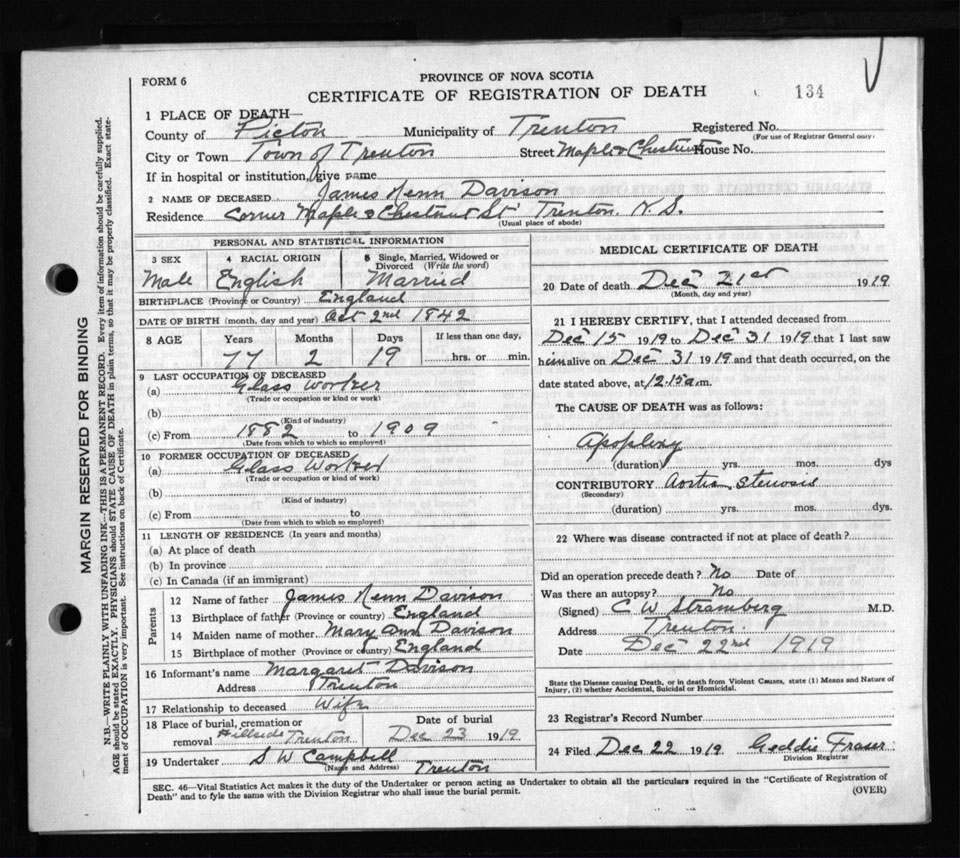 FORM 6
PROVINCE OF NOVA SCOTIA
CERTIFICATE OF REGISTRATION OF DEATH
134
1 PLACE OF DEATH
County of Pictou Municipality of Trenton Registered No.
(For use of Registrar General only)
City or Town Town of Trenton Street Maple & Chestnut House No.
If in hospital or institution, give name
2 NAME OF DECEASED James Henn Davison
Residence Corner Maple & Chestnut St Trenton. N.S.
(Usual place of abode)
PERSONAL AND STATISTICAL INFORMATION
3 SEX 4 RACIAL ORIGIN 5 Single, Married, Widowed or Divorced (Write the word)
Male English Married
BIRTHPLACE (Province or Country) England
DATE OF BIRTH (month, day and year) Oct 2nd 1842
8 AGE Years Months Days If less than one day,
77 2 19 hrs. or min.
9 LAST OCCUPATION OF DECEASED
(a) Glass Worker
(Trade or occupation or kind of work)
(b)
(Kind of industry)
(c) From 1882 to 1909
(Date from which to which so employed)
10 FORMER OCCUPATION OF DECEASED
(a) Glass Worker
(Trade or occupation or kind of work)
(b)
(Kind of industry)
(c) From to
(Date from which to which so employed)
11 LENGTH OF RESIDENCE (In years and months)
(a) At place of death
(b) In province
(c) In Canada (if an immigrant)
Parents
12 Name of father James Henn Davison
13 Birthplace of father (Province or country) England
14 Maiden name of mother Mary Ann Davison
15 Birthplace of mother (Province or country) England
16 Informant's name Margaret Davison
Address Trenton
17 Relationship to deceased Wife
18 Place of burial, cremation or removal Hillside Trenton Date of burial Dec 23 1919
19 Undertaker S W Campbell
(Name and Address) Trenton
MEDICAL CERTIFICATE OF DEATH
20 Date of death Dec 21st 1919
(Month, day and year)
21 I HEREBY CERTIFY, that I attended deceased from
Dec 15 1919 to Dec 31 1919 that I last saw
him alive on Dec 31 1919 and that death occurred, on the
date stated above, at 12.15 a.m.
The CAUSE OF DEATH was as follows:
Apoplexy
(duration) yrs. mos. dys
CONTRIBUTORY Aortic Stenosis
(Secondary)
(duration) yrs. mos. dys.
22 Where was disease contracted if not at place of death?
Did an operation precede death? No Date of
Was there an autopsy? No
(Signed) C W Stramberg M.D.
Address Trenton
Date Dec 22nd 1919
State the Disease causing Death, or in death from Violent Causes, state (1) Means and Nature of
Injury, (2) whether Accidental, Suicidal or Homicidal.
23 Registrar's Record Number
24 Filed Dec 22 1919 Geddie Fraser
Division Registrar
SEC. 46—Vital Statistics Act makes it the duty of the Undertaker or person acting as Undertaker to obtain all the particulars required in the "Certificate of Registration of
Death" and to fyle the same with the Division Registrar who shall issue the burial permit.
(OVER)
MARGIN RESERVED FOR BINDING
N.B.—WRITE PLAINLY WITH UNFADING INK—THIS IS A PERMANENT RECORD. Every item of information should be carefully supplied.
AGE should be stated EXACTLY. PHYSICIANS should STATE CAUSE OF DEATH in plain terms, so that it may be properly classified. Exact state-
ment of OCCUPATION is very important. See instructions on back of Certificate.